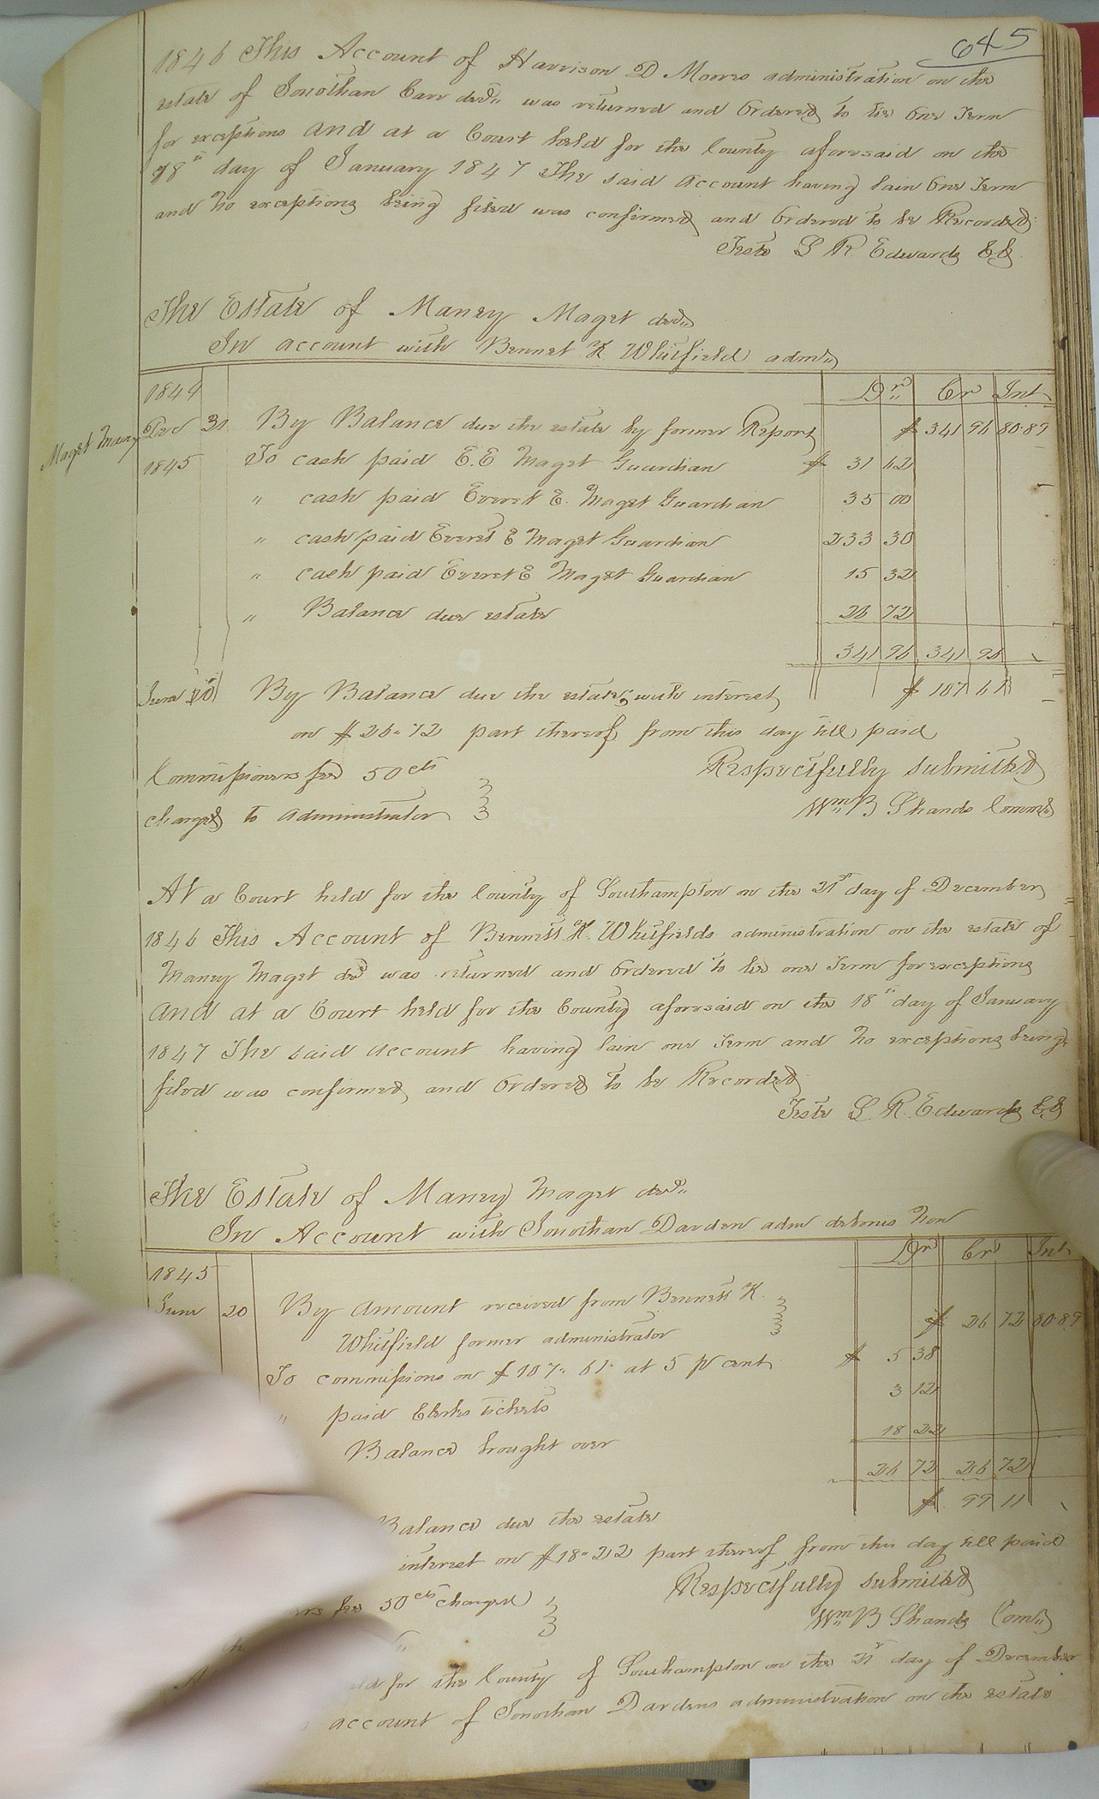 645
1846 This Account of Harrison D Monro administration on the
estate of Jonothan Carr decd. was returned and Ordered to lie One Term
for exceptions And at a Court held for the County aforesaid on the
18th day of January 1847 The said Account having lain One Term
and No exceptions being filed was confirmed and Ordered to be Recorded
Teste L R Edwards CC
The Estate of Maney Maget decd.
In account with Bennet K Whitfield admr.
1844 Dr. Cr Int
Maget Maney
Dec 31 By Balance due the estate by former Report $ 341 96 80.89
1845 To cash paid E.E Maget Guardian $ 31 62
" cash paid Everet E. Maget Guardian 35 00
" cash paid Everet E Maget Guardian 233 30
" cash paid Everet E Maget Guardian 15 32
" Balance due estate 26 72
341 96 341 96
June 20 By Balance due the estate, with interest $ 107 61
on $26.72 part thereof from this day till paid
Commissioners fee 50cts Respectfully submitted
charged to administrator Wm B Shands Commr
At a Court held for the County of Southampton on the 21st day of December
1846 This Account of Bennett K. Whitfields administration on the estate of
Maney Maget decd was returned and Ordered to lie one Term for exceptions
And at a Court held for the County aforesaid on the 18th day of January
1847 The said Account having lain one Term and No exceptions being
filed was confirmed, and Ordered to be Recorded
Teste L R. Edwards CC
The Estate of Maney Maget decd.
In Account with Jonothan Darden adm debonis Non
1845 Dr Cr Int
June 20 By Amount received from Bennett K.
Whitfield former administrator $ 26 72 80.89
To commissions on $107.61 at 5 pr cent $ 5 38
" paid Clerks tickets 3 12
Balance brought over 18 22
26 72 26 72
Balance due the estate $ 99 11
interest on $18.22 part thereof from this day till paid
fee 50cts charged Respectfully submitted
Wm B Shands Comr.
for the County of Southampton on the 21st day of December
account of Jonothan Dardens administration on the estate